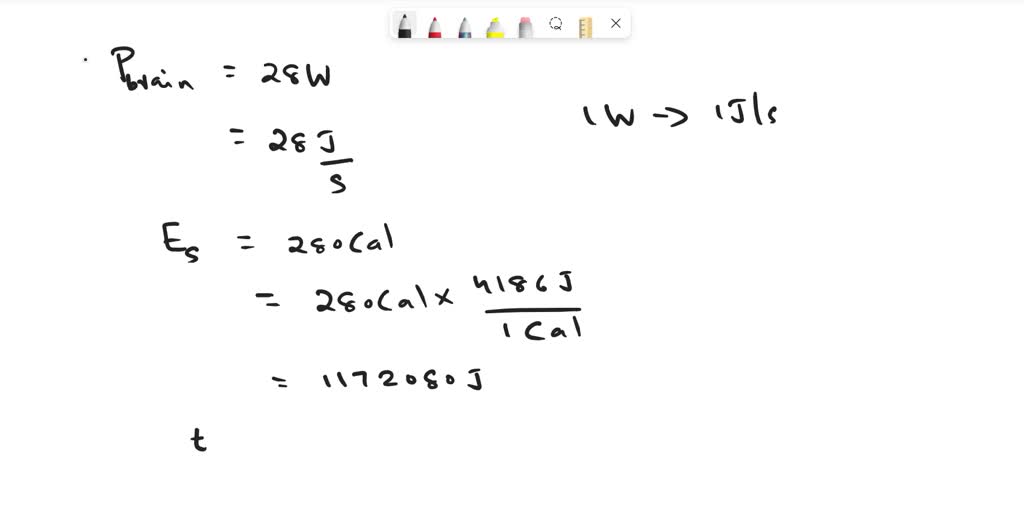 P_brain = 28W
1W → 1J/s
= 28 J/s
E_s = 280Cal
= 280Cal × 4186J/1Cal
= 1172080J
t